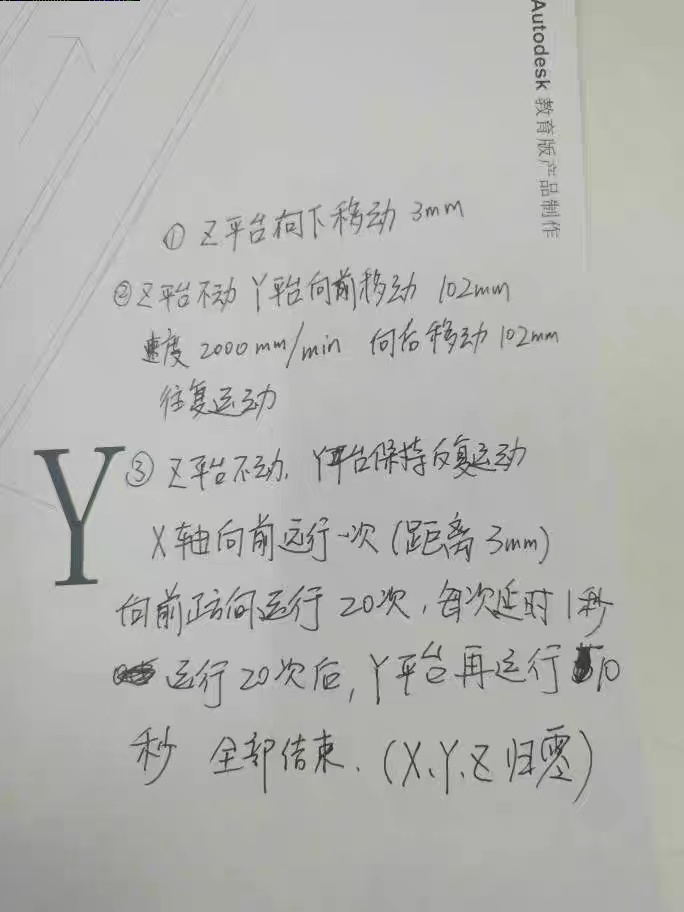 Autodesk 教育版产品制作
① Z平台向下移动 3mm
② Z平台不动 Y平台向前移动 102mm
速度 2000mm/min 向后移动 102mm
往复运动
Y
③ Z平台不动, Y平台保持反复运动
X轴向前运行一次 (距离3mm)
向前正方向运行20次, 每次延时1秒
运行20次后, Y平台再运行10
秒 全部结束. (X、Y、Z归零)